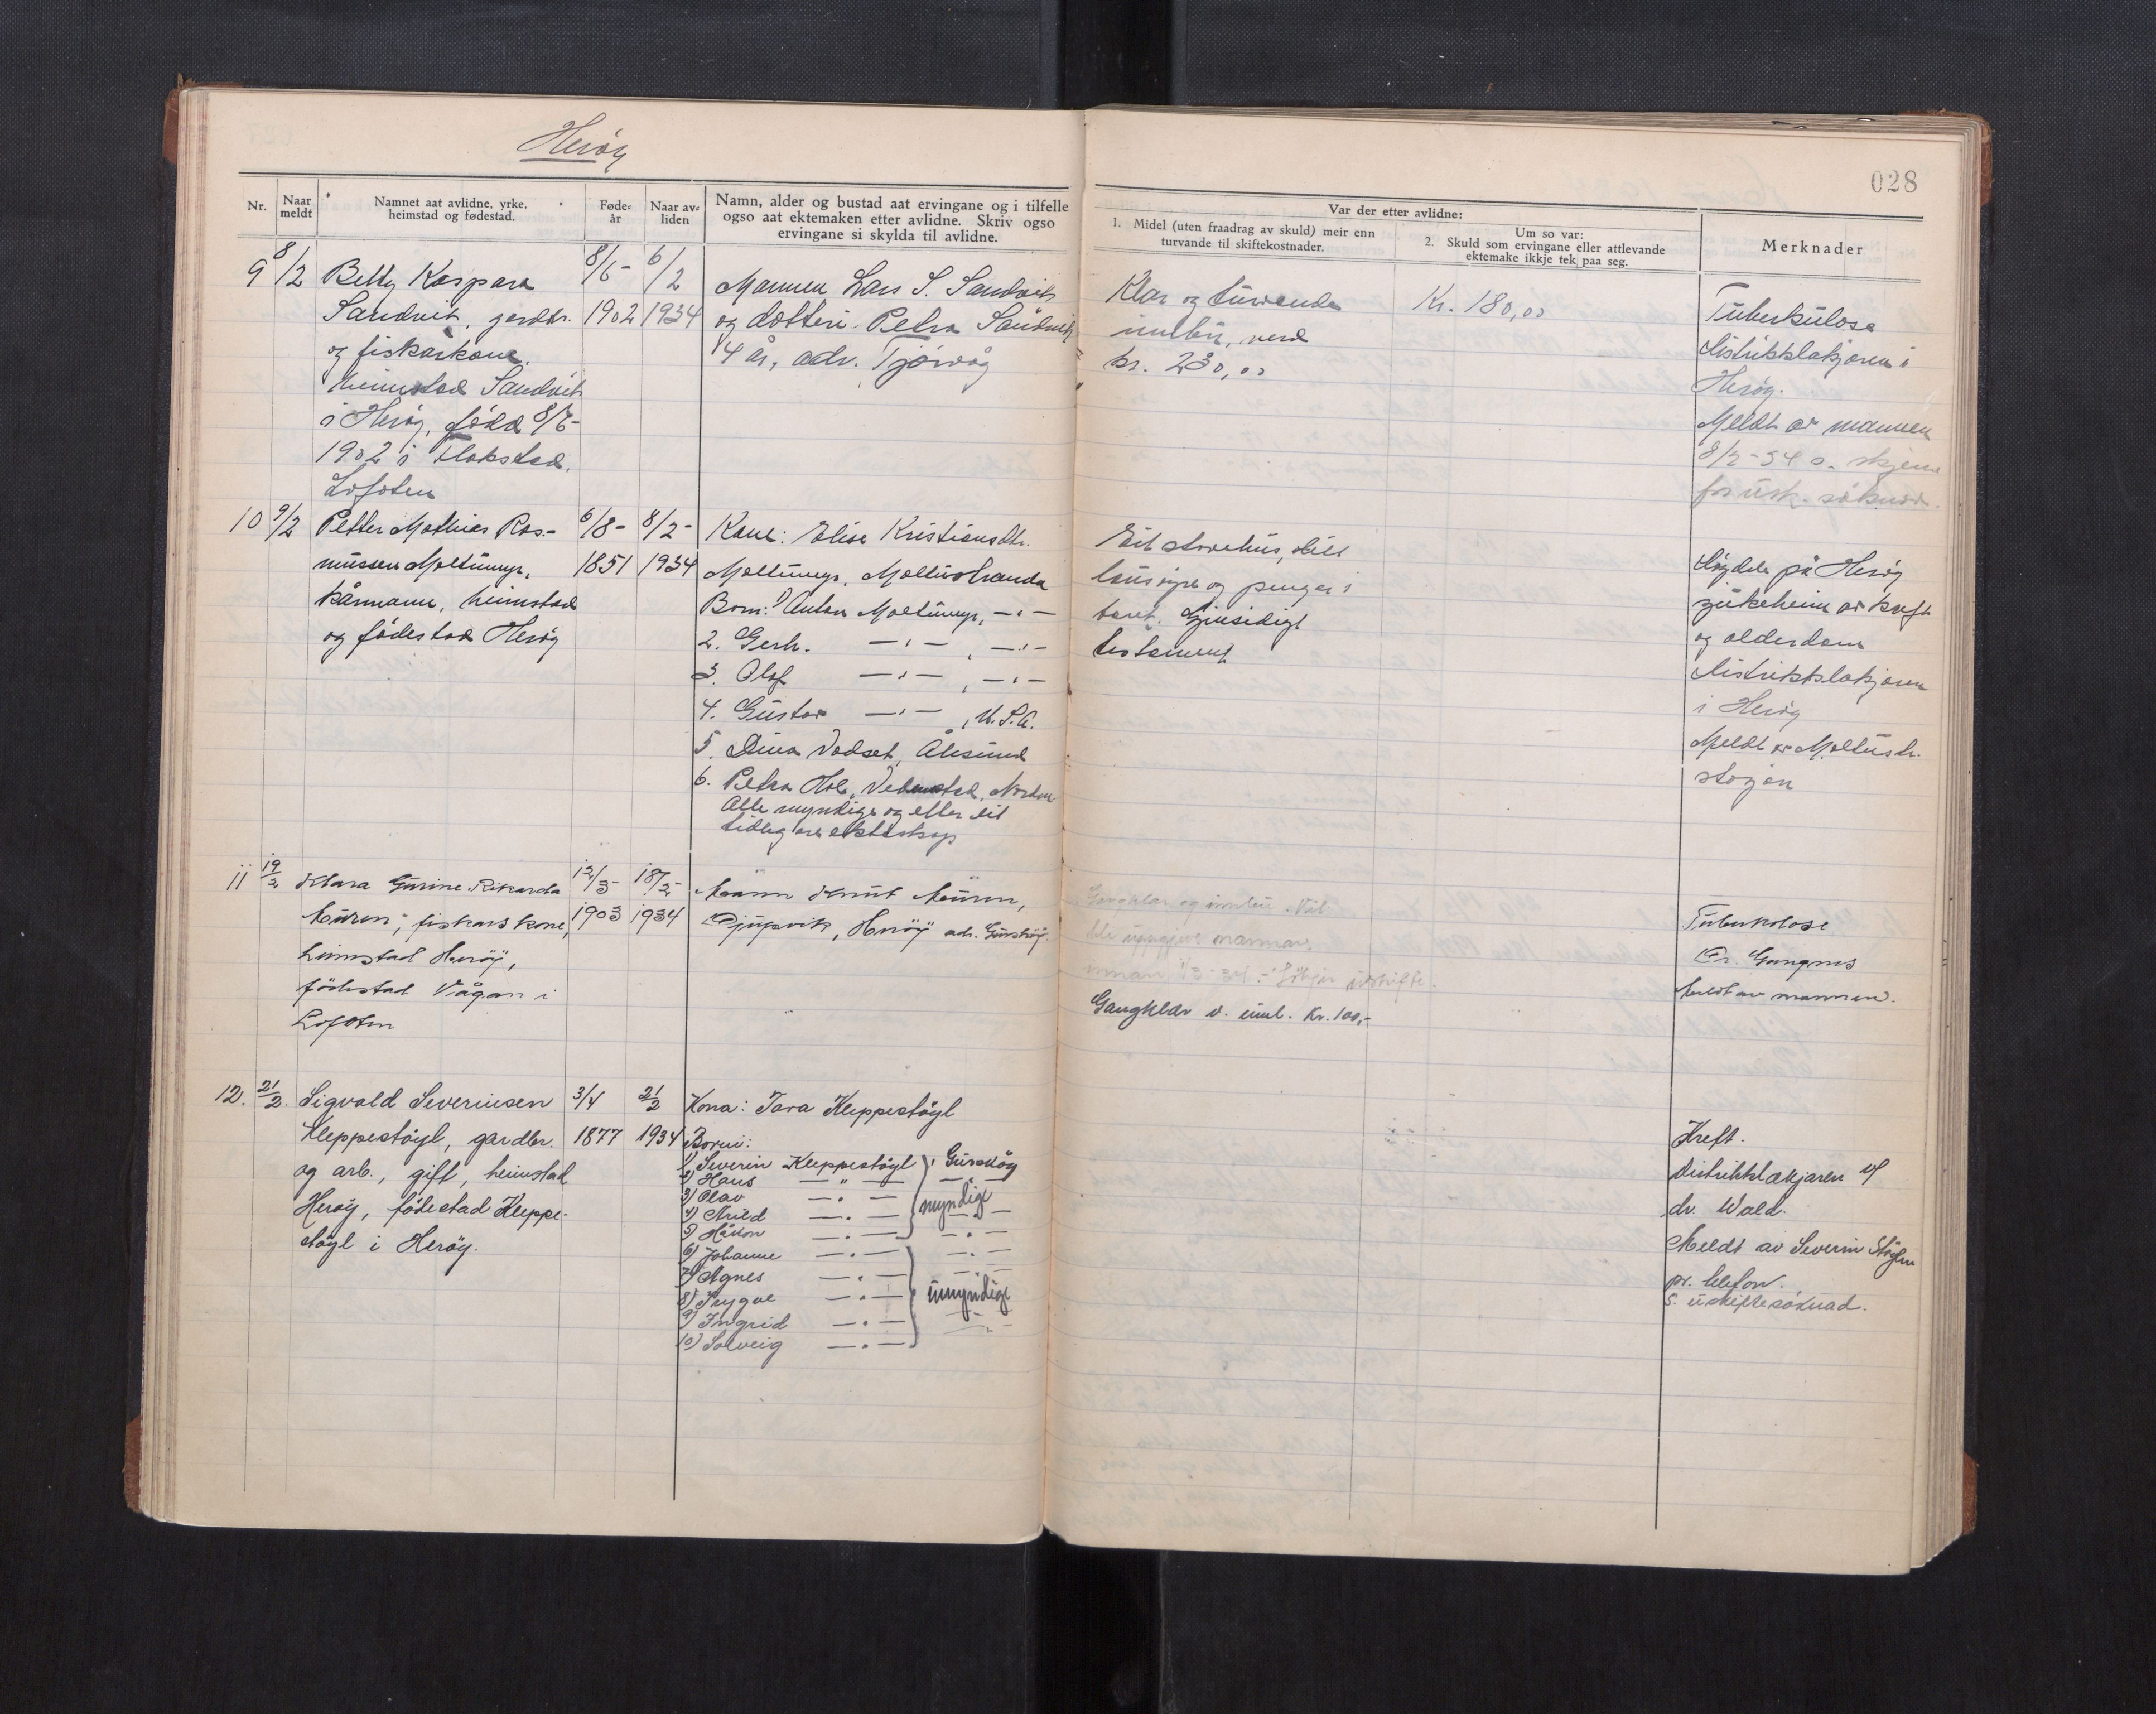 Herøy
028
Nr.
Naar meldt
Namnet aat avlidne, yrke, heimstad og fødestad.
Føde-år
Naar av-liden
Namn, alder og bustad aat ervingane og i tilfelle
ogso aat ektemaken etter avlidne. Skriv ogso
ervingane si skylda til avlidne.
Var der etter avlidne:
1. Midel (uten fraadrag av skuld) meir enn
turvande til skiftekostnader.
Um so var:
2. Skuld som ervingane eller attlevande
ektemake ikkje tek paa seg.
Merknader
9 8/2 Betty Kaspara
Sandvik, gardbr.
og fiskarkone,
heimstad Sandvik
i Herøy, fødd 8/6-
1902 i Flakstad,
Lofoten
8/6-
1902
6/2
1934
Mannen Lars S. Sandvik
og dotteri Petra Sandvik
14 år, adr. Tjørvåg
Klær og turvande
innbu, verd
kr. 230,00
Kr. 180,00
Tuberkulose
Distriktslækjaren i
Herøy.
Meldt av mannen
8/2-34 s. skjema
for usk. søknad.
10 9/2 Petter Mathias Ras-
mussen Moltumyr,
kårmann, heimstad
og fødestad Herøy
6/8-
1851
8/2-
1934
Kone: Elise Kristiansdtr.
Moltumyr, Moltustranda
Born: 1) Anton Moltumyr, —"—
2. Gerh. —"—, —"—
3. Olaf —"—, —"—
4. Gustav —"—, U.S.A.
5. Dina Vadset, Ålesund
6. Petra Hol, Nordm.
Alle myndige og etter eit
tidlegare ektaskap
Eit stovehus, litt
lausøyre og pengar i
bank. Gjensidigt
testament
Døydde på Herøy
sjukeheim av kreft
og alderdom
Distriktslækjaren
i Herøy
Meldt av Moltustr.
11 19/2 Klara Gurine Rikarda
Muren, fiskars kone,
heimstad Herøy,
fødestad Vågan i
Lofoten
12/5
1903
18/2
1934
Mann Knut Muren,
Djupvik, Herøy adr. Gurskøy.
Gangklær og innbu
Gangklær o. innb. Kr. 100,-
Tuberkolose
Dr. Gangnes
Meldt av mannen.
12. 21/2. Sigvald Severinsen
Kleppestøyl, gardbr.
og arb., gift, heimstad
Herøy, fødestad Kleppe-
støyl i Herøy.
3/4
1877
21/2
1934
Kona: Tara Kleppestøyl
Borni:
1) Severin Kleppestøyl, Gurskøy
2) Hans —"— —"—
3) Olav —"— myndige
4) Arild —"— —"—
5) Håkon —"— —"—
6) Johanne —"— —"—
7) Agnes —"— —"—
8) Trygve —"— umyndige
9) Ingrid —"— —"—
10) Solveig —"—
Kreft.
Distriktslækjaren v/
dr. Wald.
Meldt av Severin Støylen
pr. telefon.
S. uskiftesøknad.